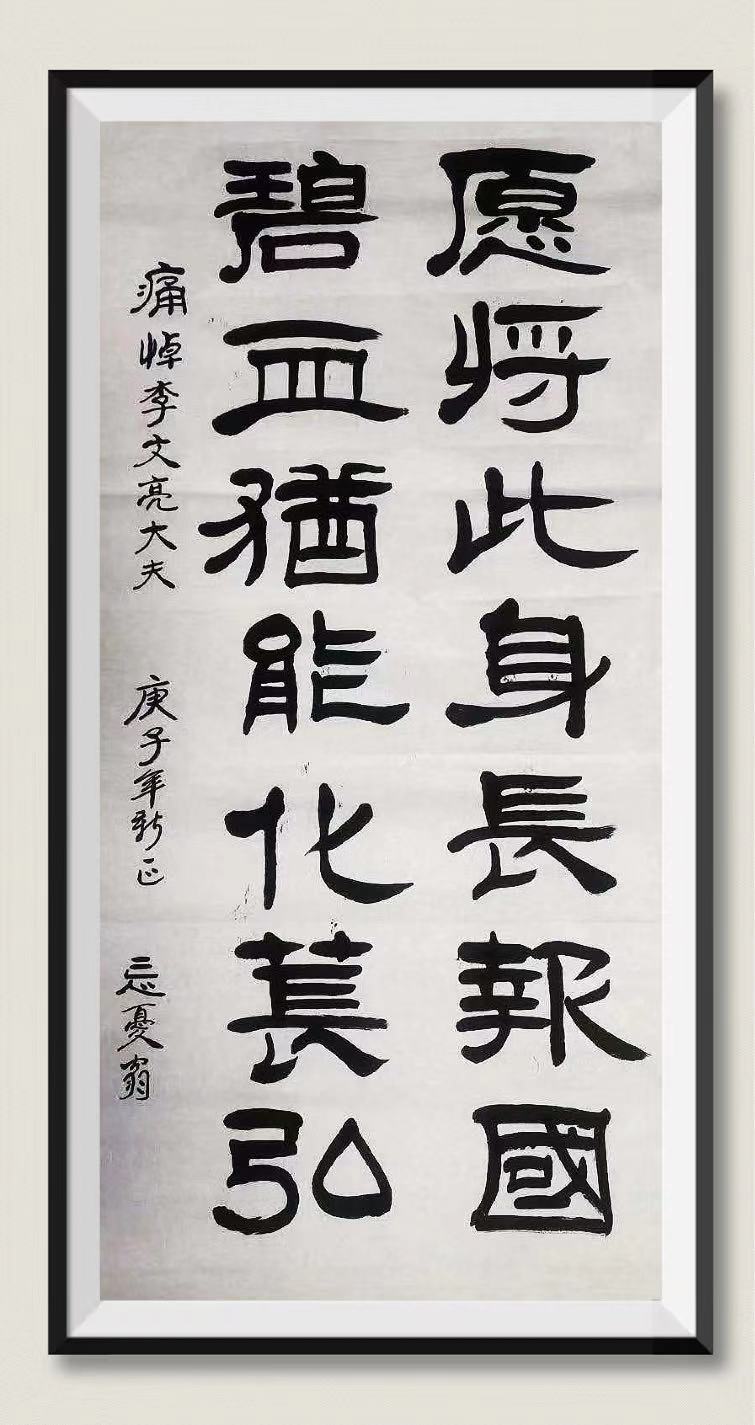 愿将此身長報國
碧血猶能化萇弘
痛悼李文亮大夫 庚子年新正 忘憂翁